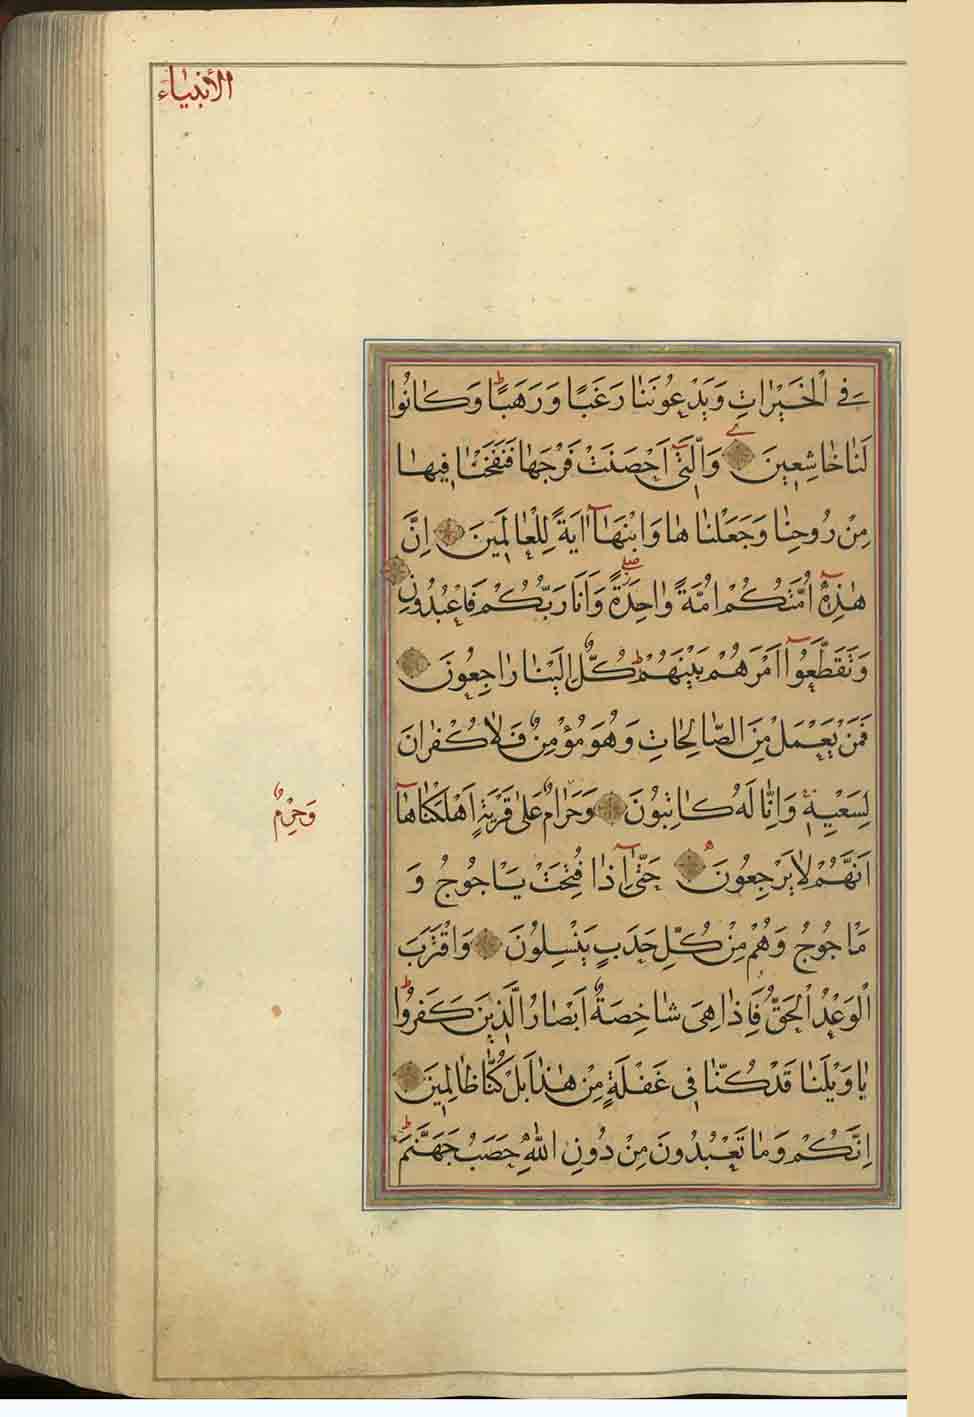 الأنبياء
فِي الْخَيْرَاتِ وَيَدْعُونَنَا رَغَبًا وَرَهَبًا وَكَانُوا
لَنَا خَاشِعِينَ وَالَّتِي أَحْصَنَتْ فَرْجَهَا فَنَفَخْنَا فِيهَا
مِنْ رُوحِنَا وَجَعَلْنَاهَا وَابْنَهَا آيَةً لِلْعَالَمِينَ اِنَّ
هٰذِهِ اُمَّتُكُمْ اُمَّةً وَاحِدَةً وَاَنَا رَبُّكُمْ فَاعْبُدُونِ
وَتَقَطَّعُوا اَمْرَهُمْ بَيْنَهُمْ كُلٌّ اِلَيْنَا رَاجِعُونَ
فَمَنْ يَعْمَلْ مِنَ الصَّالِحَاتِ وَهُوَ مُؤْمِنٌ فَلَا كُفْرَانَ
لِسَعْيِهِ وَاِنَّا لَهُ كَاتِبُونَ وَحَرَامٌ عَلٰى قَرْيَةٍ اَهْلَكْنَاهَا
وَحِرْمٌ
اَنَّهُمْ لَا يَرْجِعُونَ حَتّٰى اِذَا فُتِحَتْ يَاجُوجُ وَ
مَاجُوجُ وَهُمْ مِنْ كُلِّ حَدَبٍ يَنْسِلُونَ وَاقْتَرَبَ
الْوَعْدُ الْحَقُّ فَاِذَا هِيَ شَاخِصَةٌ اَبْصَارُ الَّذِينَ كَفَرُوا
يَا وَيْلَنَا قَدْ كُنَّا فِي غَفْلَةٍ مِنْ هٰذَا بَلْ كُنَّا ظَالِمِينَ
اِنَّكُمْ وَمَا تَعْبُدُونَ مِنْ دُونِ اللّٰهِ حَصَبُ جَهَنَّمَ